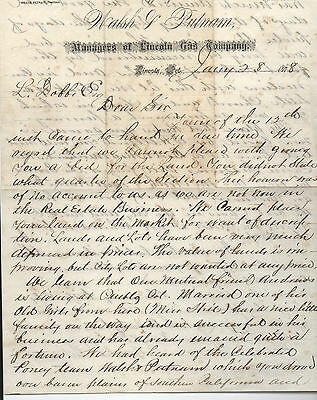 Walsh & Putnam,
Managers of Lincoln Gas Company.
Lincoln, Neb. Jany 28 1878.
L. Bobbi Esq
Dear Sir
Yours of the 15th
inst Came to hand in due time. We
regret that we cannot please with giving
you a bid for the Land. You did not State
what quarter of the Section. This however was
of no account to us, as we are not now in
the Real Estate Business. We Cannot place
your land on the Market for want of descrip
tion. Lands and Lots have been very much
depressed in price. The value of lands is im
proving, but City Lots are not wanted at any price.
We learn that Our Mutual friend
is living at Col. Married one of his
Old (Miss ) has a nice little
family on the way and is successful in his
business and has already a
fortune. We had heard of the Celebrated
Poney team Walsh & Putnam which you
over barren plains of Southern California and